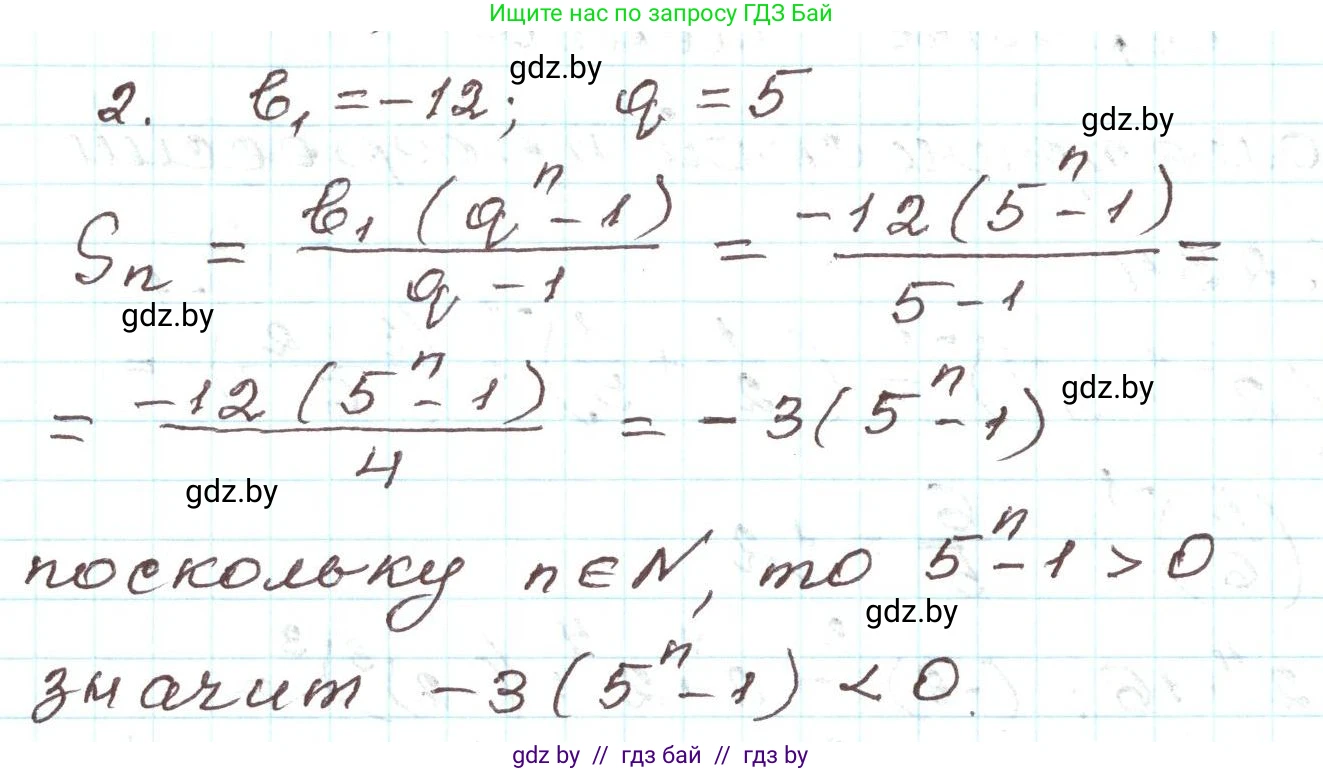 Ищите нас по запросу ГДЗ Бай
2. b₁ = -12; q = 5
gdz.by
gdz.by
Sₙ = b₁(qⁿ - 1) / q - 1 = -12(5ⁿ - 1) / 5 - 1 =
gdz.by
= -12(5ⁿ - 1) / 4 = -3(5ⁿ - 1)
gdz.by
gdz.by
поскольку n∈N, то 5ⁿ - 1 > 0
gdz.by
значит -3(5ⁿ - 1) < 0.
gdz by // гдз бай // гдз by